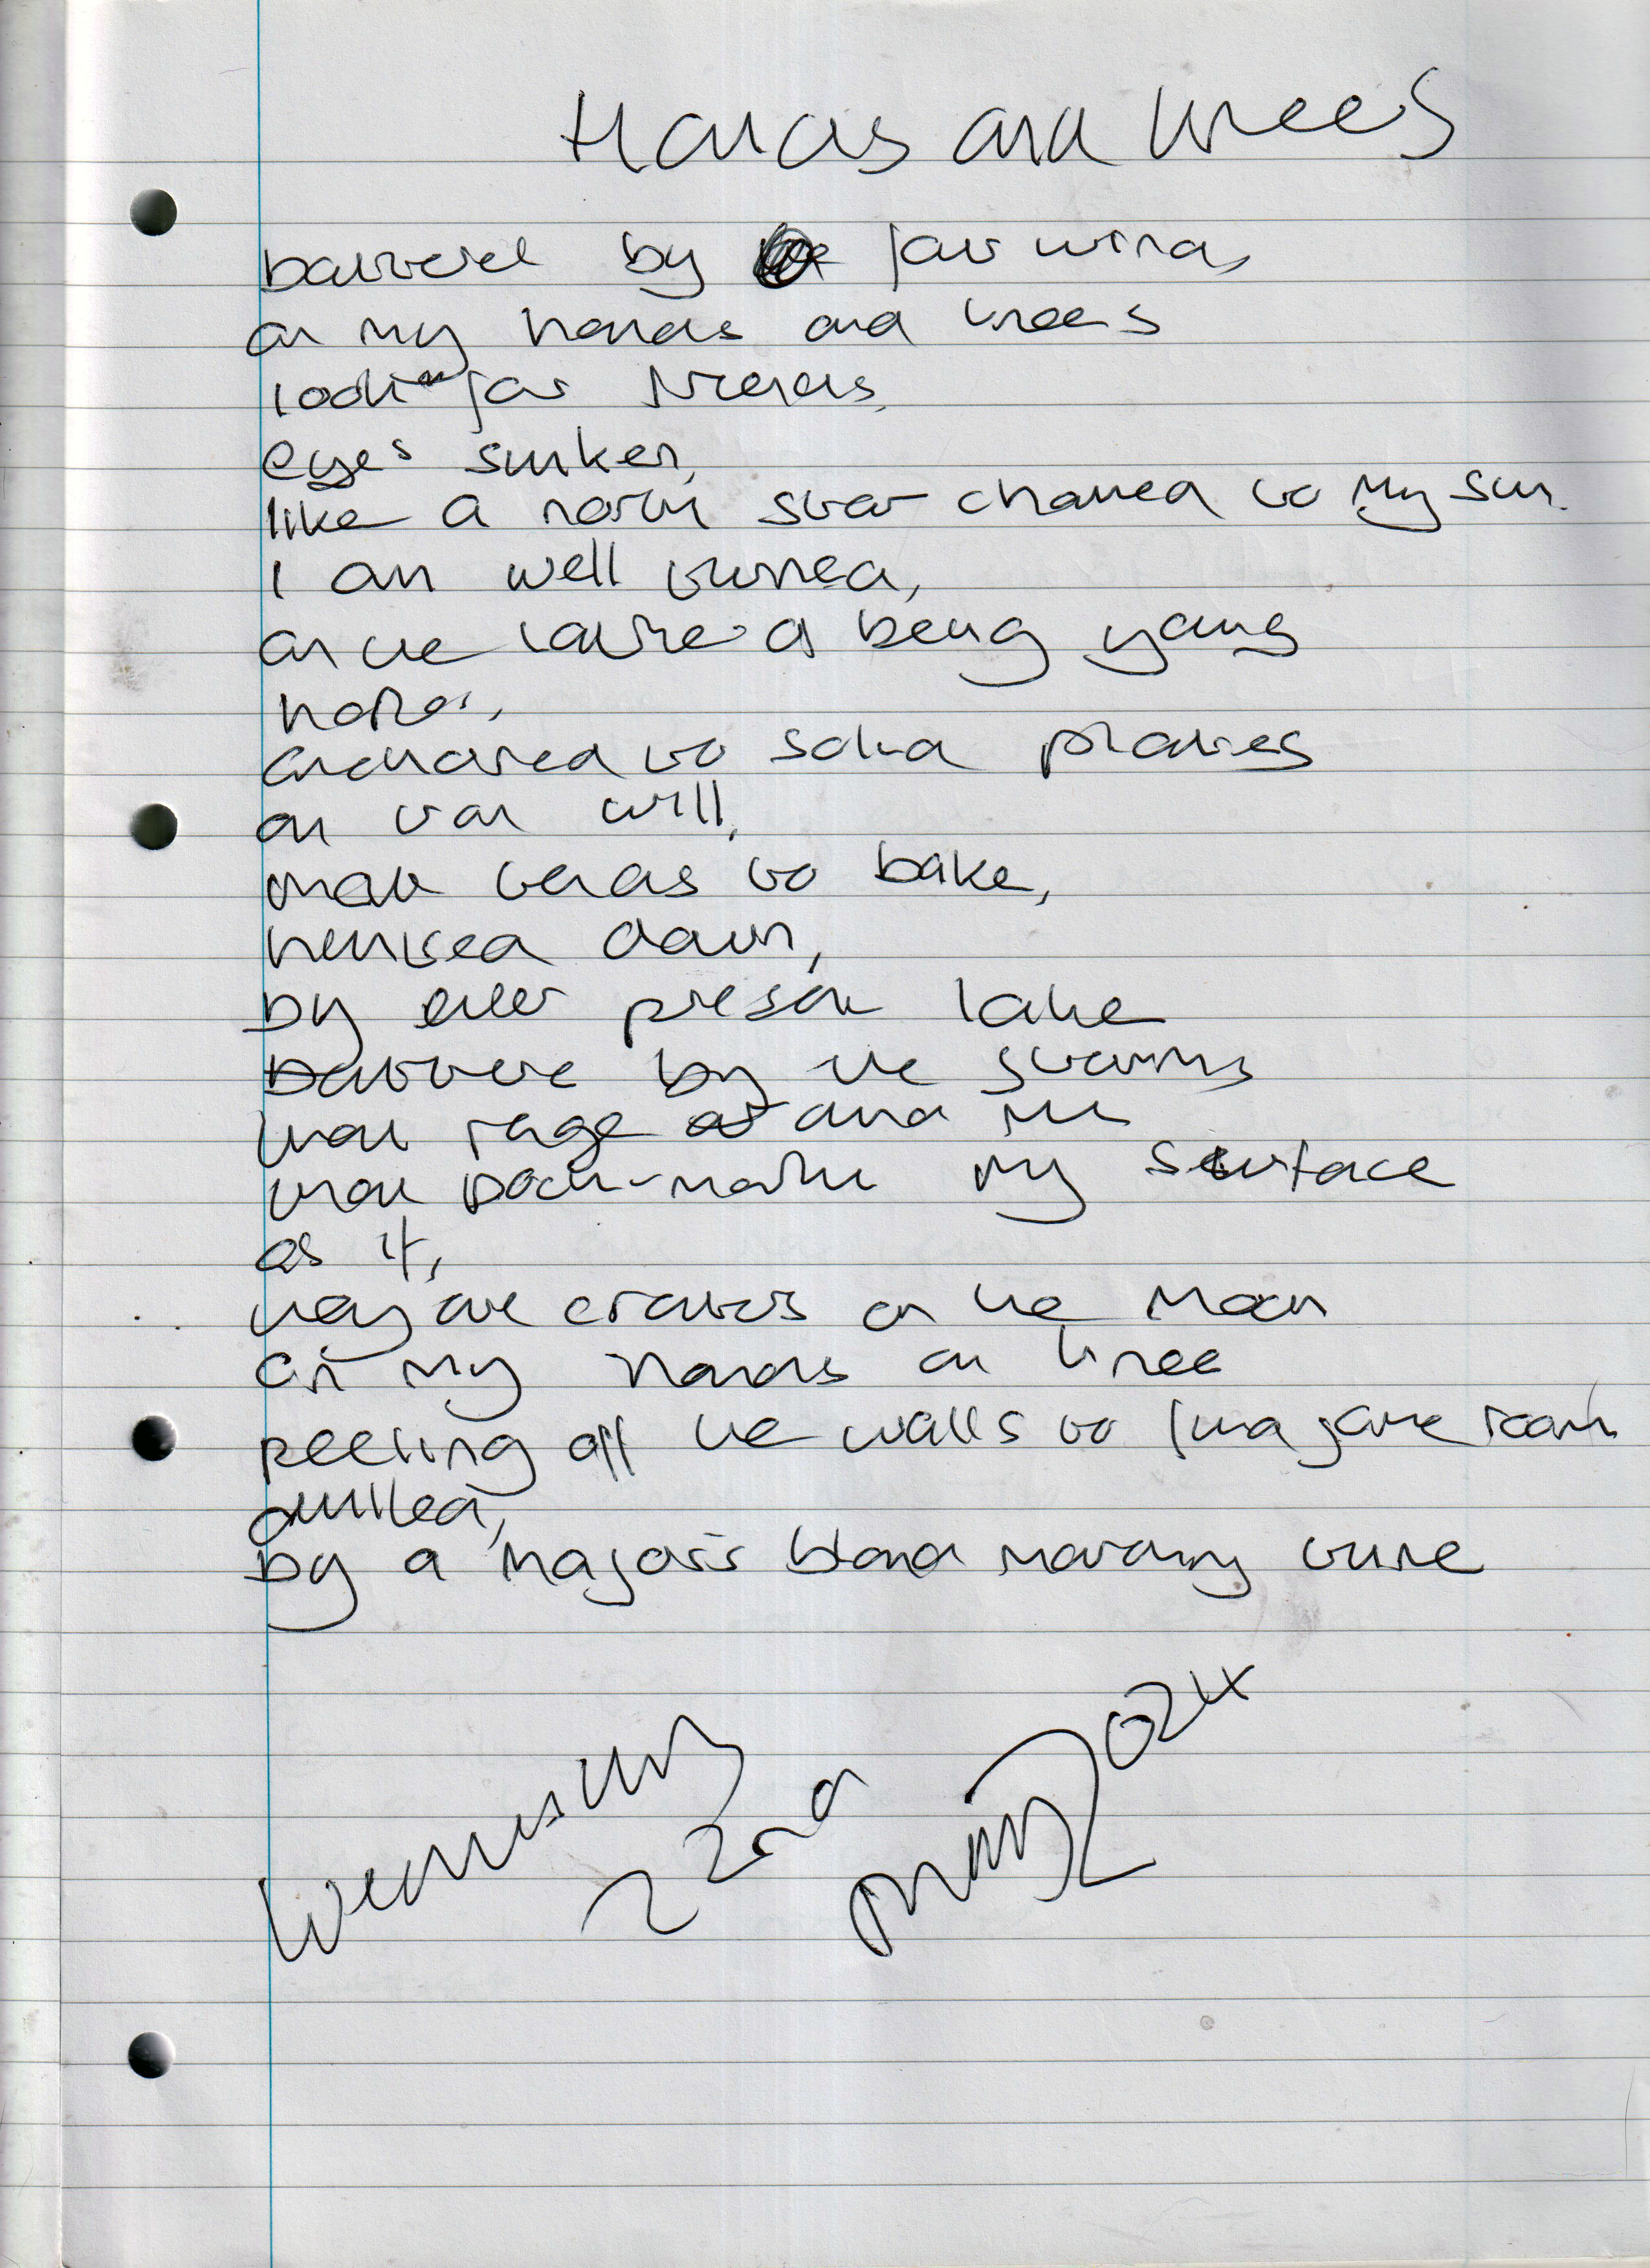 Hands and knees
battered by four winds
on my hands and knees
look for friends,
eyes sunken,
like a north star chained to my sun.
I am well turned,
on the lathe of being young
hotter,
anchored to solid plates
on tar will,
that tends to bake,
down,
by ever present lake
battered by the storms
that rage and
that pock-mark my surface
as if,
they are craters on the moon
on my hands on knee
peeling off the walls to find some room
by a majestic bland tune
Wednesday
22nd
May 2024